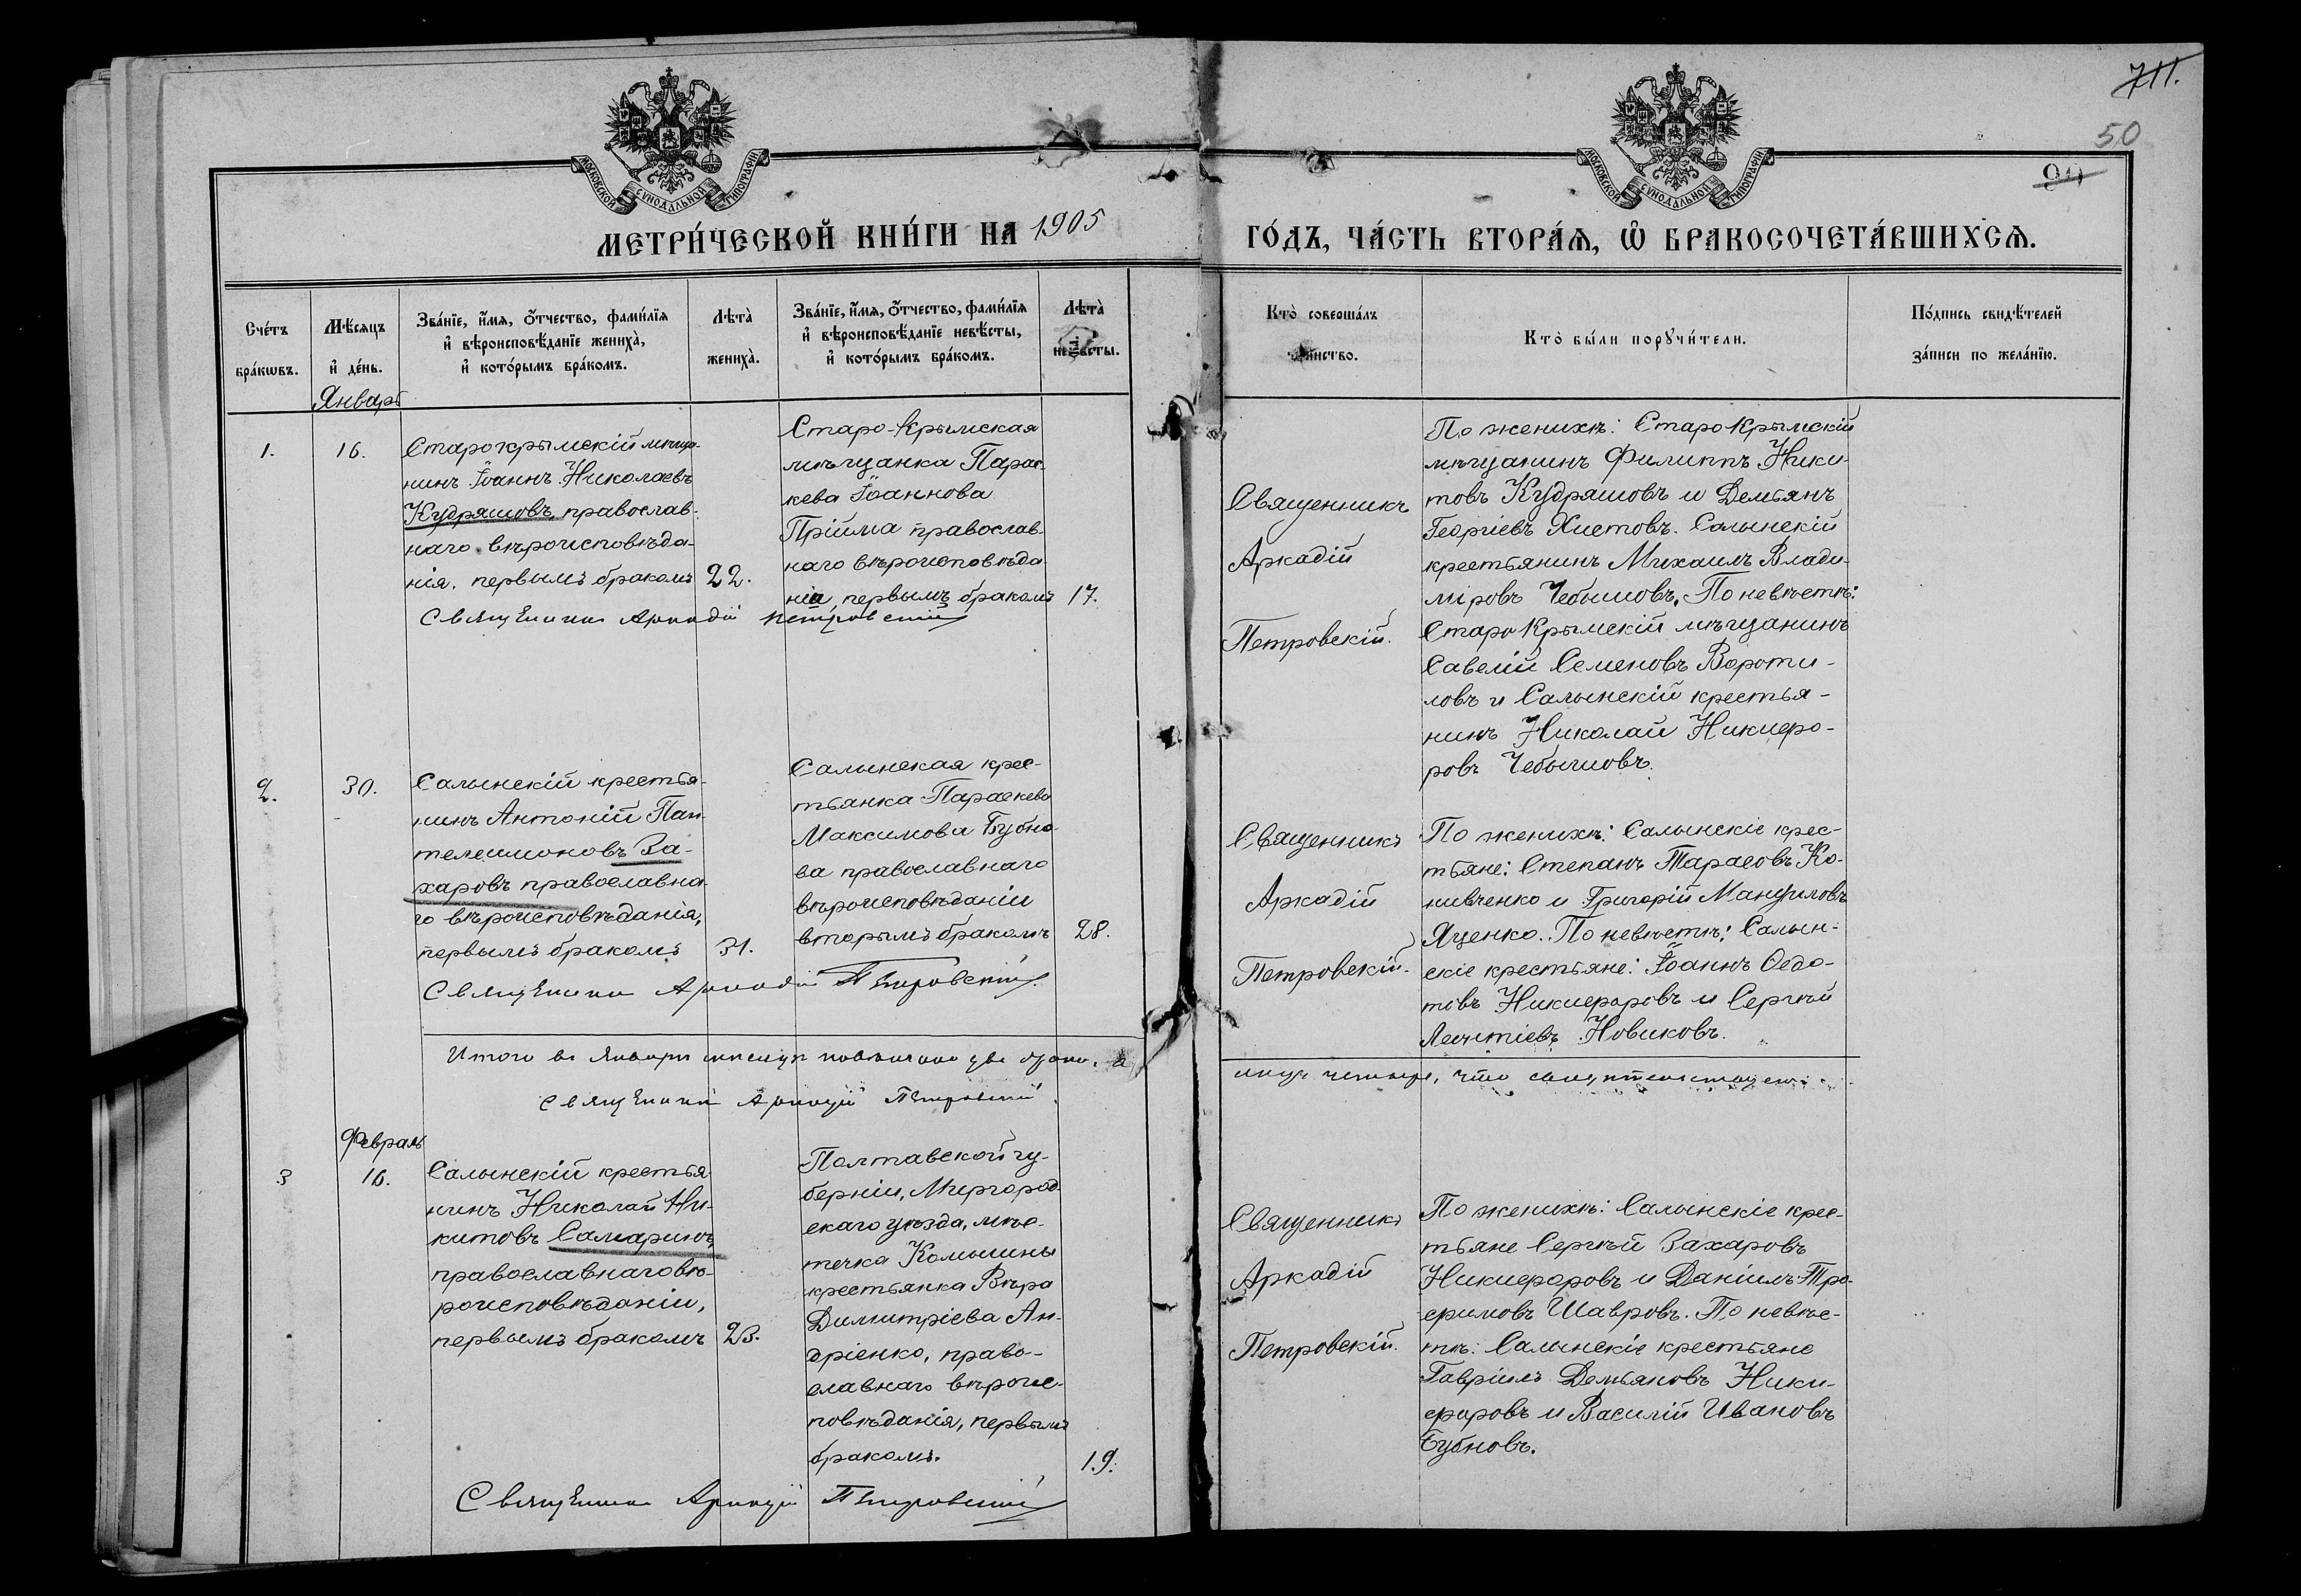 711.
50
90
МОСКОВСКОЙ СѴНОДАЛЬНОЙ ТИПОГРАФІИ
МОСКОВСКОЙ СѴНОДАЛЬНОЙ ТИПОГРАФІИ
МЕТРИ́ЧЕСКОЙ КНИ́ГИ НА 1905
ГО́ДЪ, ЧА́СТЬ ВТОРА́Ѧ, Ѽ БРАКОСОЧЕТА́ВШИХСѦ.
Сче́тъ
бра́кѡвъ.
Мѣ́сяцъ
и҆ де́нь.
Зва́нїе, и҆́мѧ, ѻ҆́тчество, фами́лїѧ
и҆ вѣроисповѣ́данїе жениха̀,
и҆ кото́рымъ бра́комъ.
Лѣта̀
жениха̀.
Зва́нїе, и҆́мѧ, ѻ҆́тчество, фами́лїѧ
и҆ вѣроисповѣ́данїе невѣ́сты,
и҆ кото́рымъ бра́комъ.
Лѣта̀
невѣсты.
Кто̀ соверша́лъ
таинство.
Кто̀ бы́ли порꙋчи́тели.
По́дпись свидѣ́телей
за́писи по жела́нїю.
Январь
1.
16.
Старокрымскій мѣща-
нинъ Іоаннъ Николаевъ
Кудряшовъ, православ-
наго вѣроисповѣда-
нія, первымъ бракомъ
22.
Старо-Крымская
мѣщанка Парас-
кева Іоаннова
Прійма православ-
наго вѣроисповѣда
нія, первымъ бракомъ
17.
Священникъ Аркадій Петровскій
Священникъ
Аркадій
Петровскій.
По женихѣ: СтароКрымскій
мѣщанинъ Филиппъ Ники-
товъ Кудряшовъ и Демьянъ
Георгіевъ Хистовъ. Салынскій
крестьянинъ Михаилъ Влади-
міровъ Чебышовъ. По невѣстѣ:
СтароКрымскій мѣщанинъ
Савелій Семеновъ Вороти-
ловъ и Салынскій крестья-
нинъ Николай Никифо-
ровъ Чебышовъ.
2.
30.
Салынскій крестья-
нинъ Антоній Пан-
телеимоновъ За-
харовъ православна-
го вѣроисповѣданія,
первымъ бракомъ
31.
Салынская крес-
тьянка Параскева
Максимова Бубно-
ва православнаго
вѣроисповѣданіи
вторымъ бракомъ
28.
Священникъ Аркадій Петровскій.
Священникъ
Аркадій
Петровскій.
По женихѣ: Салынскіе крес-
тьяне: Степанъ Тарасовъ Ко-
нивченко и Григорій Мануиловъ
Яценко. По невѣстѣ: Салын-
скіе крестьяне: Іоаннъ Ѳедо-
товъ Никифоровъ и Сергѣй
Леонтіевъ Новиковъ.
Итого въ Январѣ мѣсяцѣ повѣнчано два брака, а
лицъ четыре, что
Священникъ Аркадій Петровскій.
Февраль
3
16.
Салынскій крестья-
нинъ Николай Ни-
китовъ Самаринъ,
православнаго вѣ-
роисповѣданіи,
первымъ бракомъ
23.
Полтавской гу-
берніи, Миргород-
скаго уѣзда, мѣс-
течка Комышны
крестьянка Вѣра
Димитріева Ан-
дріенко, право-
славнаго вѣроис-
повѣданія, первымъ
бракомъ.
19.
Священникъ Аркадій Петровскій
Священникъ
Аркадій
Петровскій.
По женихѣ: Салынскіе крес-
тьяне Сергѣй Захаровъ
Никифоровъ и Даніилъ Тро-
фимовъ Шавровъ. По невѣс-
тѣ: Салынскіе крестьяне
Гавріилъ Демьяновъ Ники-
форовъ и Василій Ивановъ
Бубновъ.